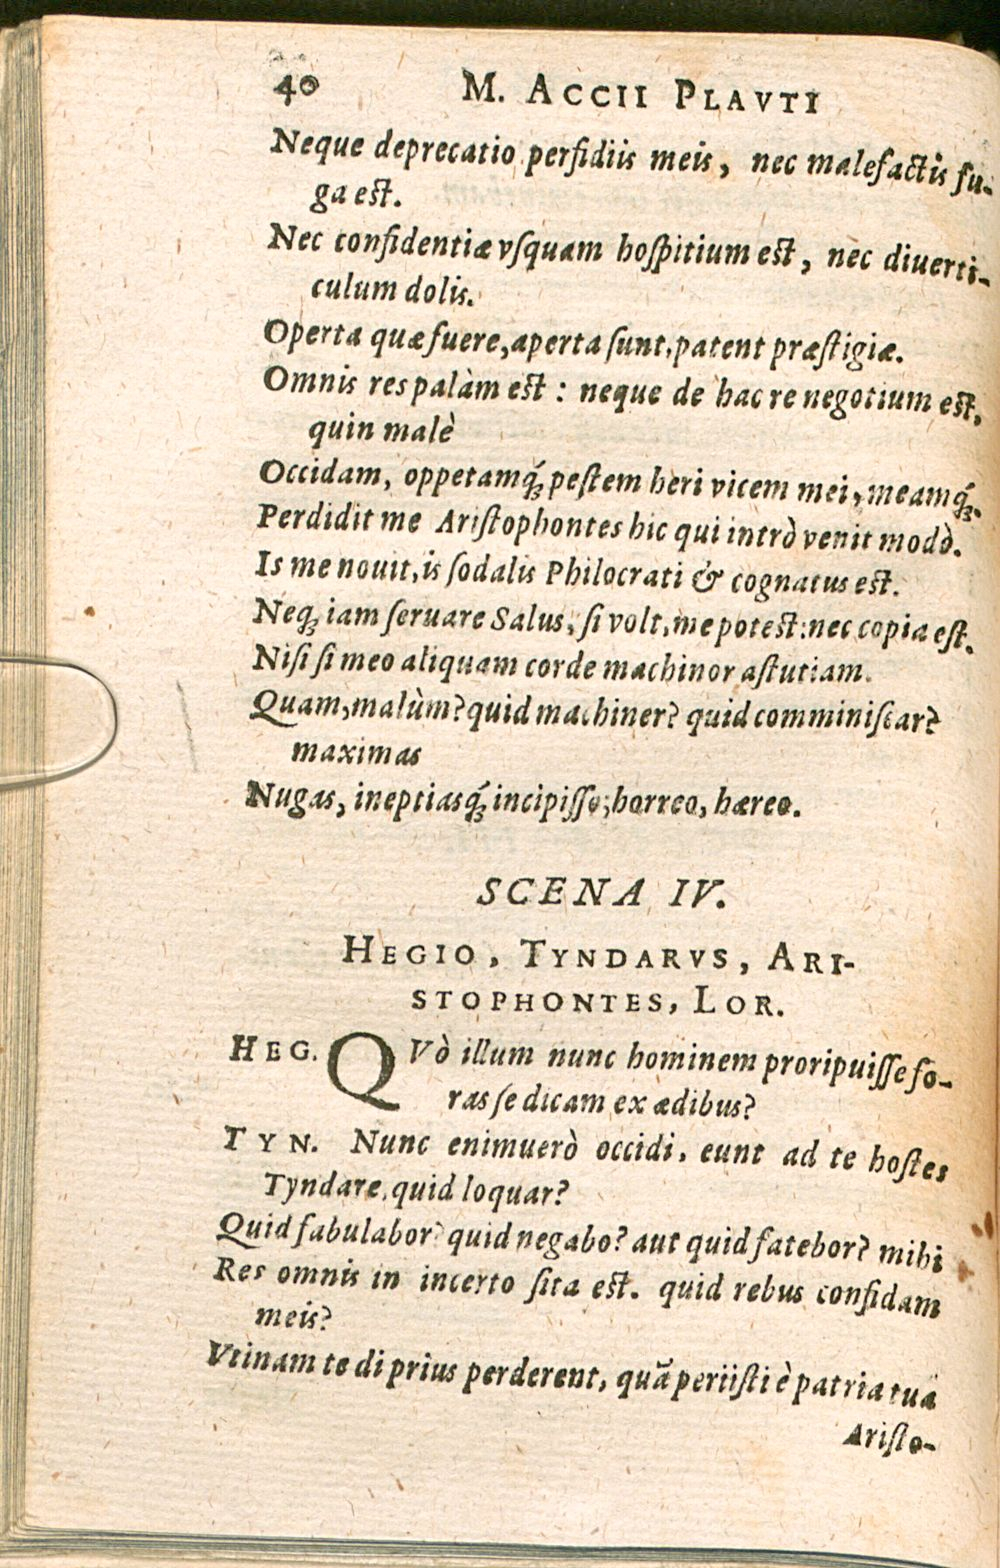 40 M. ACCII PLAVTI
Neque deprecatio perfidiis meis, nec malefactis fu-
ga est.
Nec confidentiæ vſquam hoſpitium est, nec diuerti-
culum dolis.
Operta quæ fuere, aperta ſunt, patent præſtigiæ.
Omnis res palàm est : neque de hac re negotium est,
quin malè
Occidam, oppetamq́; peſtem heri vicem mei, meamq́;.
Perdidit me Ariſtophontes hic qui intrò venit modò.
Is me nouit, is ſodalis Philocrati & cognatus est.
Neq; iam ſeruare Salus, ſi volt, me potest: nec copia eſt.
Niſi ſi meo aliquam corde machinor aſtutiam.
Quam, malùm? quid machiner? quid comminiſcar?
maximas
Nugas, ineptiasq́; incipiſſo; horreo, hæreo.
SCENA IV.
HEGIO, TYNDARVS, ARI-
STOPHONTES, LOR.
HEG. QVò illum nunc hominem proripuiſſe fo-
ras ſe dicam ex ædibus?
TYN. Nunc enimuerò occidi. eunt ad te hoſtes
Tyndare. quid loquar?
Quid fabulabor? quid negabo? aut quid fatebor? mihi
Res omnis in incerto ſita est. quid rebus confidam
meis?
Vtinam te di prius perderent, quã periiſti è patria tua
Ariſto-